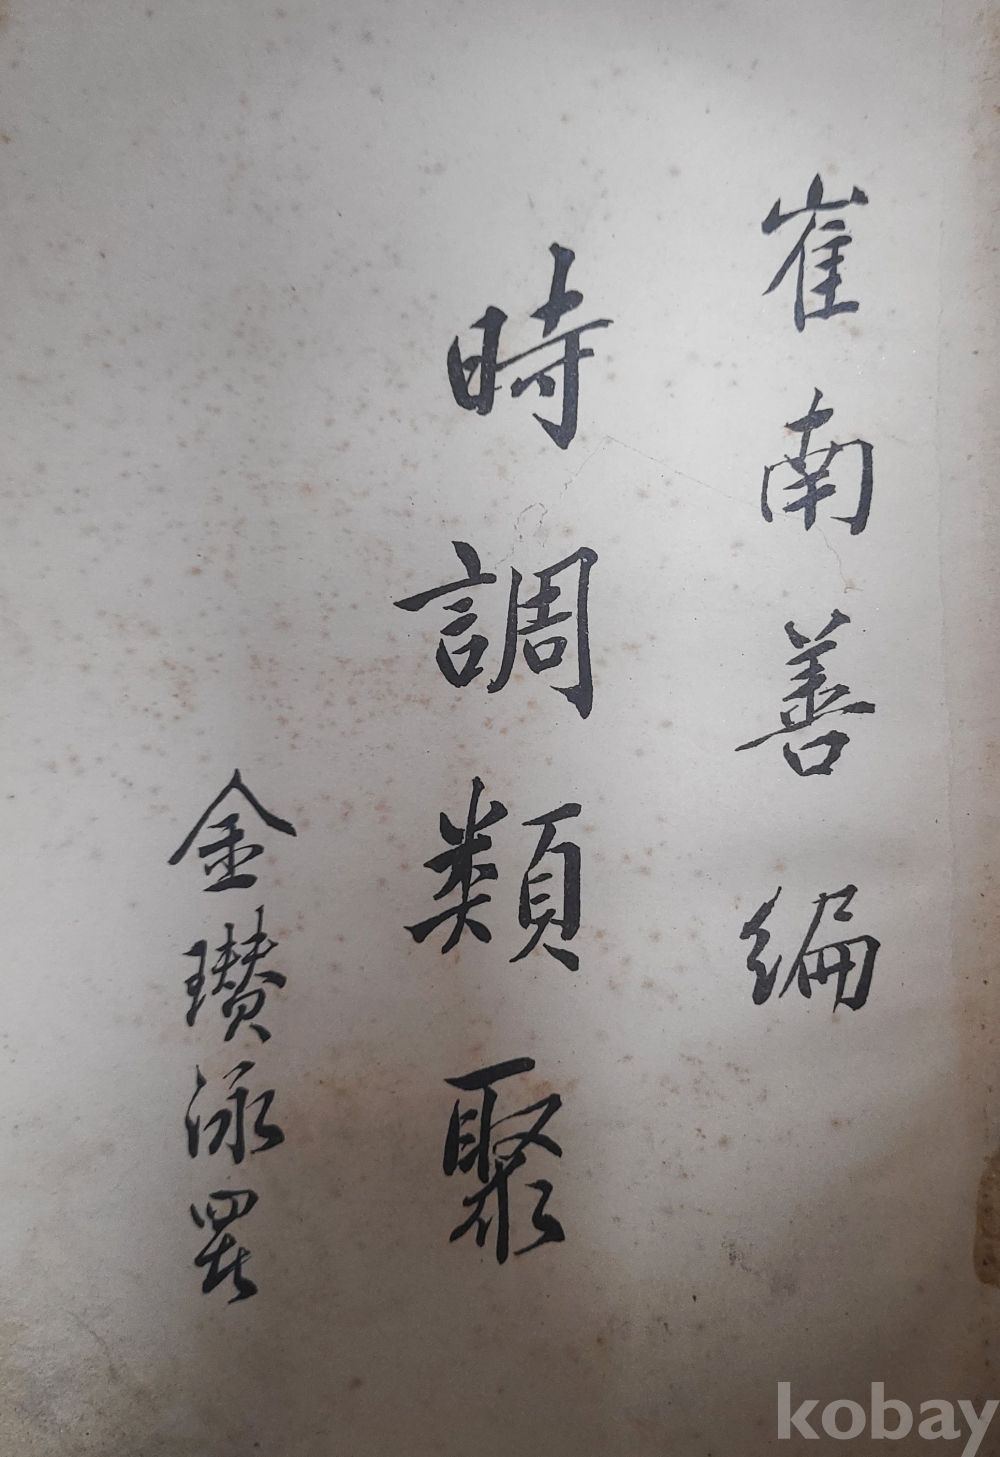 崔南善編
時調類聚
金瓚泳署
kobay